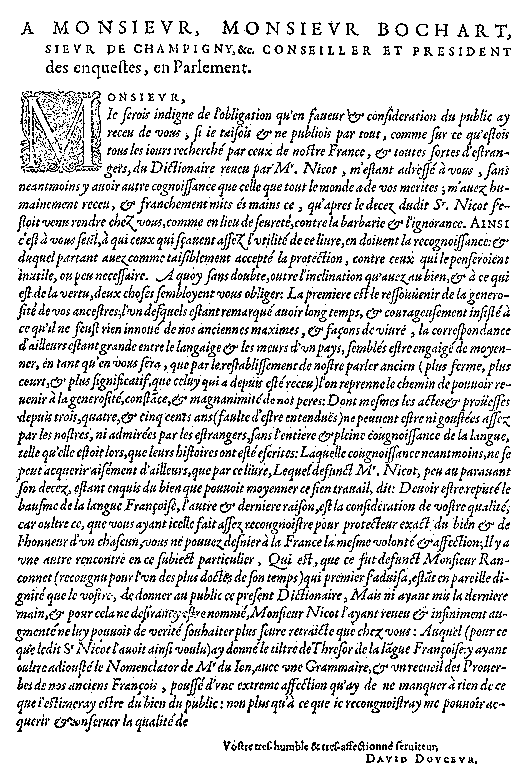 A MONSIEVR, MONSIEVR BOCHART,
SIEVR DE CHAMPIGNY, &c. CONSEILLER ET PRESIDENT
des enqueſtes, en Parlement.
MONSIEVR,
Ie ſerois indigne de l'obligation qu'en faueur & conſideration du public ay
receu de vous, ſi ie taiſois & ne publiois par tout, comme ſur ce qu'eſtois
tous les iours recherché par ceux de noſtre France, & toutes ſortes d'eſtran-
gers, du Dictionaire reueu par Mr. Nicot, m'eſtant adreſſé à vous, ſans
neantmoins y auoir autre cognoiſſance que celle que tout le monde a de vos merites; m'auez hu-
mainement receu, & franchement mits és mains ce, qu'apres le decez dudit Sr. Nicot ſe-
ſtoit venu rendre chez vous, comme en lieu de ſeureté, contre la barbarie & l'ignorance. AINSI
c'eſt à vous ſeul, à qui ceux qui ſçauent aſſez l'vtilité de ce liure, en doiuent la recognoiſſance: &
duquel partant auez comme taiſiblement accepté la protection, contre ceux qui le penſeroient
inutile, ou peu neceſſaire. A quoy ſans doute, outre l'inclination qu'auez au bien, & à ce qui
eſt de la vertu, deux choſes ſembloyent vous obliger: La premiere eſt le reſſouuenir de la genero-
ſité de vos anceſtres; l'vn deſquels eſtant remarqué auoir long temps, & courageuſement inſiſté à
ce qu'il ne feuſt rien innoué de nos anciennes maximes, & façons de viuré, la correſpondance
d'ailleurs eſtant grande entre le langaige & les meurs d'vn pays, ſemblés eſtre engaigé de moyen-
ner, en tant qu'en vous ſera, que par le reſtabliſſement de noſtre parler ancien (plus ferme, plus
court, & plus ſignificatif, que celuy qui a depuis eſté receu) l'on reprenne le chemin de pouuoir re-
uenir à la generoſité, conſtāce, & magnanimité de nos peres: Dont meſmes les actes & proüeſſes
depuis trois, quatre, & cinq cents ans (faulte d'eſtre entenduës) ne peuuent eſtre ni gouſtées aſſez
par les noſtres, ni admirées par les eſtrangers, ſans l'entiere & pleine cougnoiſſance de la langue,
telle qu'elle eſtoit lors, que leurs hiſtoires ont eſté eſcrites: Laquelle cougnoiſſance neantmoins, ne ſe
peut acquerir aiſément d'ailleurs, que par ce liure, Lequel defunct Mr. Nicot, peu au parauant
ſon decez, eſtant enquis du bien que pouuoit moyenner ce ſien trauail, dit: Deuoir eſtre reputé le
bauſme de la langue Françoiſe, l'autre & derniere raiſon, eſt la conſideration de voſtre qualité,
car oultre ce, que vous ayant icelle fait aſſez recougnoiſtre pour protecteur exact du bien & de
l'honneur d'vn chaſcun, vous ne pouuez deſnier à la France la meſme volonté & affection; Il y a
vne autre rencontre en ce ſubiect particulier, Qui eſt, que ce fut defunct Monſieur Ran-
connet (recognu pour l'vn des plus doctes de ſon temps) qui premier ſ'aduiſa, eſtāt en pareille di-
gnité que le voſtre, de donner au public ce preſent Dictionaire, Mais ni ayant mis la derniere
main, & pour cela ne deſirant y eſtre nommé, Monſieur Nicot l'ayant reueu & infiniment au-
gmenté ne luy pouuoit de verité ſouhaiter plus ſeure retraicte que chez vous: Auquel (pour ce
que ledit Sr Nicot l'auoit ainſi voulu) ay donné le tiltre de Threſor de la lāgue Françoiſe: y ayant
oultre adiouſté le Nomenclator de Mr du Ion, auec vne Grammaire, & vn recueil des Prouer-
bes de nos anciens François, pouſſé d'vne extreme affection qu'ay de ne manquer à rien de ce
que i'eſtimeray eſtre du bien du public: non plus qu'à ce que ie recougnoiſtray me pouuoir ac-
querir & conſeruer la qualité de
Voſtre tres-humble & tres-affectionné ſeruiteur,
DAVID DOVCEVR.